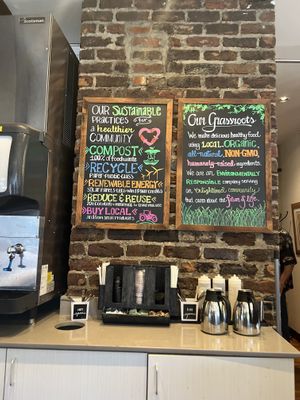 Scotsman
OUR SUSTAINABLE
PRACTICES for
a healthier
COMMUNITY
COMPOST
100% of food waste
RECYCLE
RENEWABLE ENERGY
REDUCE & REUSE
BUY LOCAL
Our Grassroots
We make delicious healthy food
using LOCAL, ORGANIC,
all-natural, NON-GMO,
humanely-raised ingredients.
We are an ENVIRONMENTALLY
RESPONSIBLE company serving
an Enlightened community that
cares about the future of life.